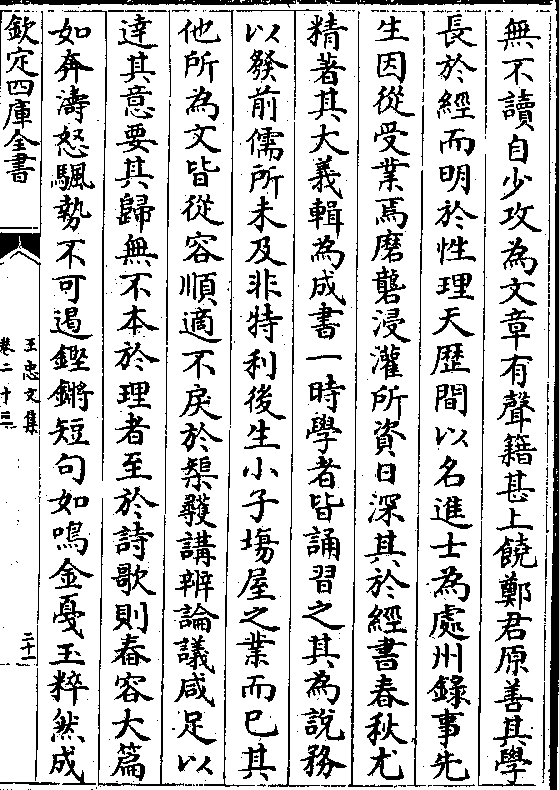 無不讀自少攻為文章有聲籍甚上饒鄭君原善其學
長於經而明於性理天歴間以名進士為處州錄事先
生因從受業焉磨礱浸灌所資日深其於經書春秋尤
精著其大義輯為成書一時學者皆誦習之其為說務
以發前儒所未及非特利後生小子塲屋之業而已其
他所為文皆從容順適不戾於榘矱講辨論議咸足以
達其意要其歸無不本於理者至於詩歌則舂容大篇
如奔濤怒颿勢不可遏鏗鏘短句如鳴金戛玉粹然成
欽定四庫全書
王忠文集
卷二十三
二十一